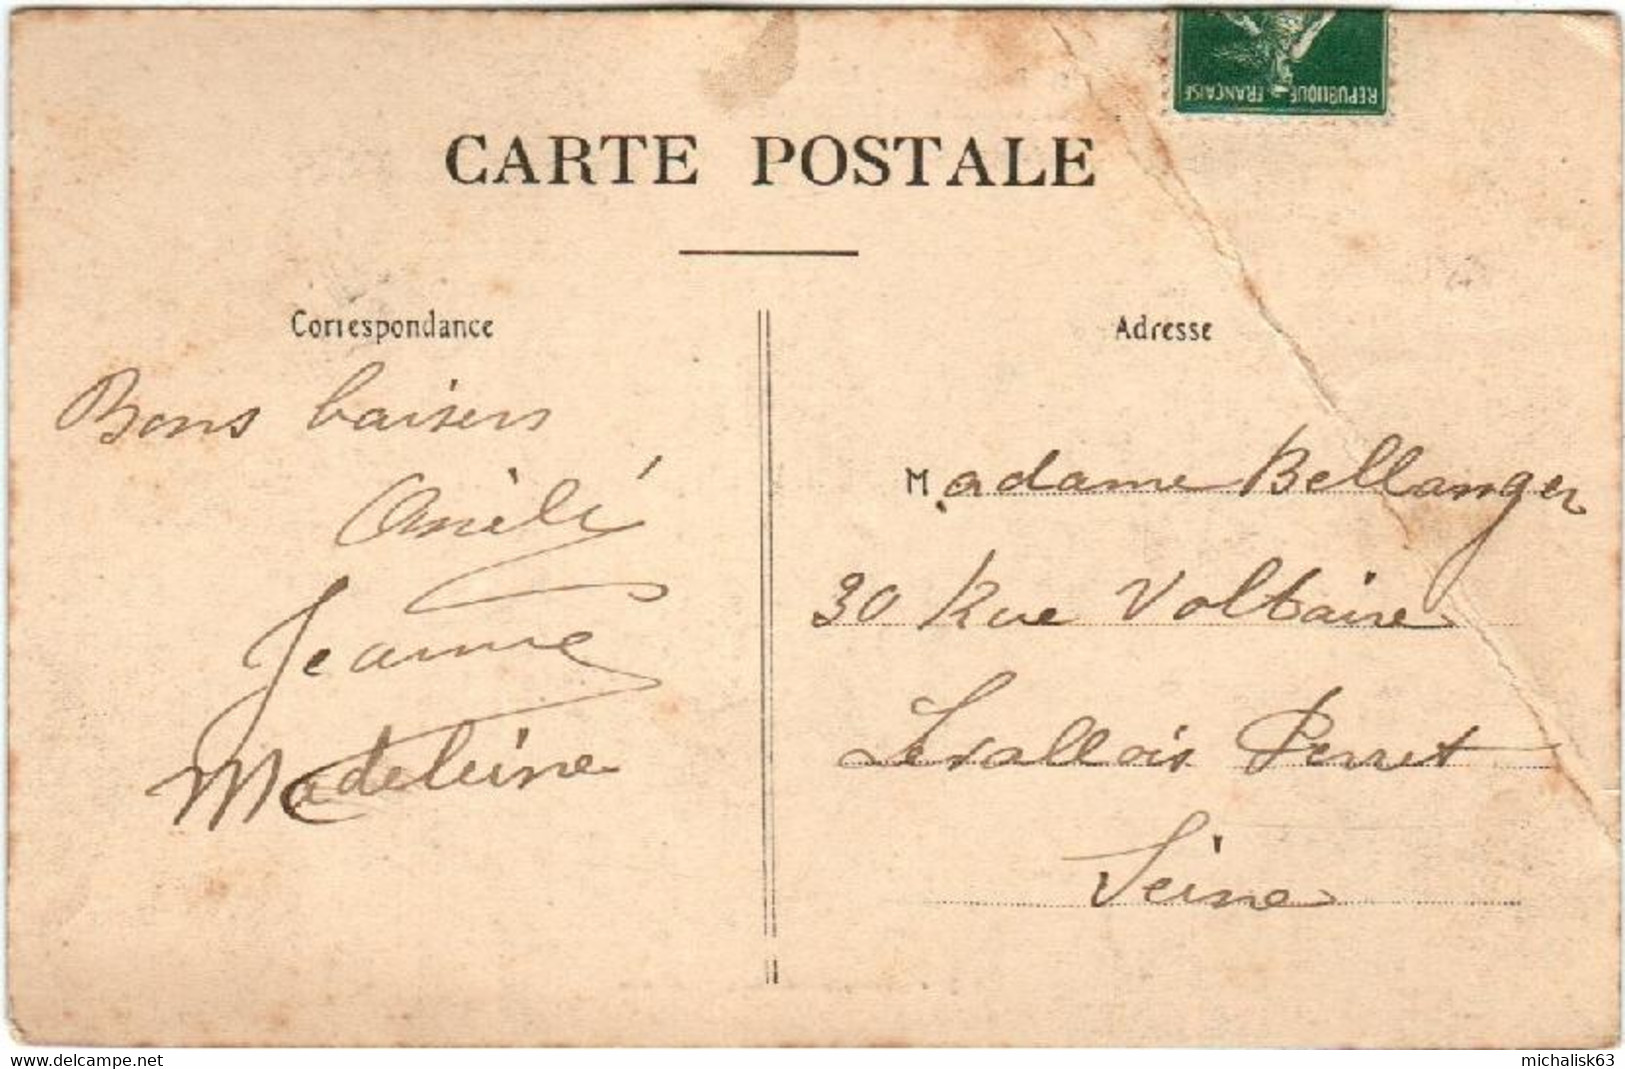 REPUBLIQUE FRANÇAISE
CARTE POSTALE
Correspondance
Adresse
Bons baisers
Jeanne
Madeleine
Madame Bellanger
30 Rue Voltaire
Levallois Perret
Seine
delcampe.net
michalisk63